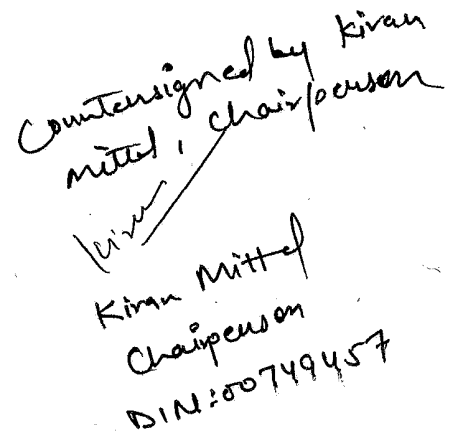 Countersigned by Kiran
Mittal, Chairperson
Kiran
Kiran Mittal
Chairperson
DIN:00749457